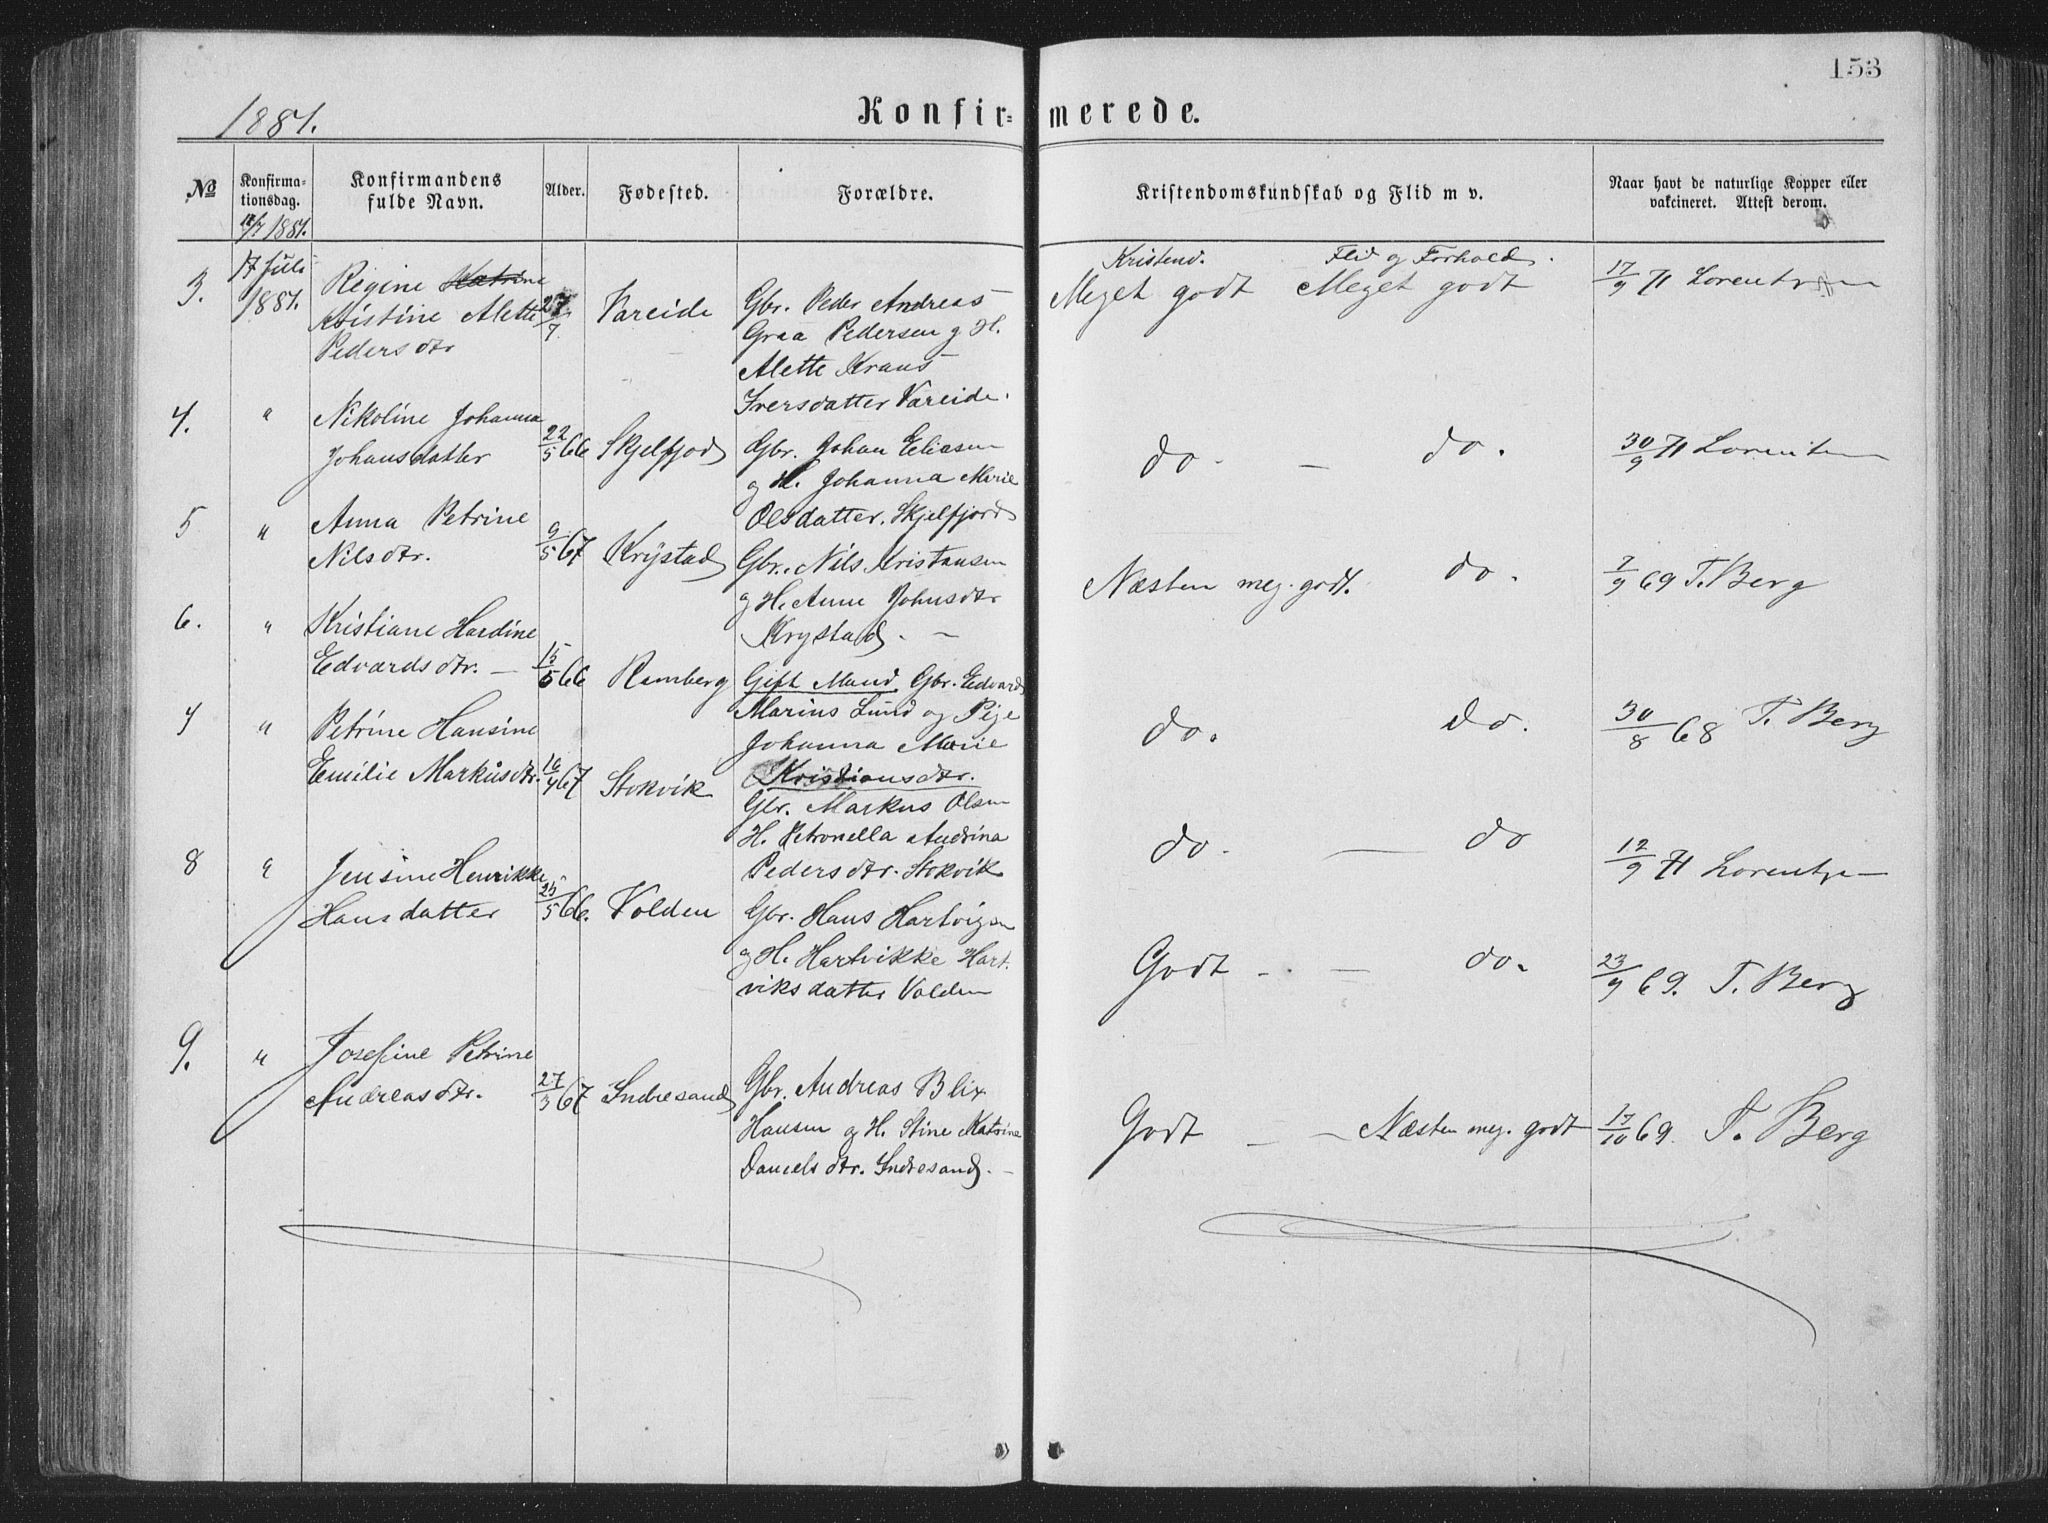 153
1881.
Konfir- merede.
№
Konfirma-
tionsdag.
1881.
Konfirmandens
fulde Navn.
Alder.
Fødested.
Forældre.
Kristendomskundskab og Flid m v.
Naar havt de naturlige Kopper eller
vakcineret. Attest derom.
3.
17 Juli
1881.
Regine Katrine
Kristine Alette
Pedersdtr
27/7
Vareide
Gbr. Peder Andreas
Graa Pedersen g H.
Alette Kraus
Iversdatter Vareide.
Kristend. Flid og Forhold.
Meget godt Meget godt
17/9 71 Lorentzen
4.
"
Nikoline Johanna
Johansdatter
22/5 66
Skjelfjord
Gbr. Johan Eliasen
og H. Johanna Marie
Olsdatter. Skjelfjord
do. – do.
30/9 71 Lorentzen
5
"
Anna Petrine
Nilsdtr.
9/5 67
Krystad
Gbr. Nils Kristansen
og H. Anne Johnsdtr
Krystad. –
Næsten meg. godt. do.
7/9 69 T. Berg
6.
"
Kristiane Hardine
Edvardsdtr. –
15/5 66
Ramberg
Gift Mand Gbr. Edvard
Marius Lund og Pige
Johanna Marie
Kristiansdtr.
do. do.
30/8 68 T. Berg
7
"
Petrine Hansine
Emilie Markusdtr.
16/4 67
Stokvik
Gbr. Markus Olsen
H. Petronella Andrina
Pedersdtr. Stokvik
do. – do
12/9 71 Lorentzen
8
"
Jensine Henrikke
Hansdatter
25/5 66.
Volden
Gbr. Hans Hartvigsen
og H. Hartvikke Hart-
viksdatter Volden
Godt – – do.
23/9 69. T. Berg
9.
"
Josefine Petrine
Andreasdtr.
27/3 67
Indresand
Gbr. Andreas Blix
Hansen og H. Stine Katrine
Danielsdtr. Indresand. –
Godt – – Næsten meg. godt
17/10 69. T. Berg